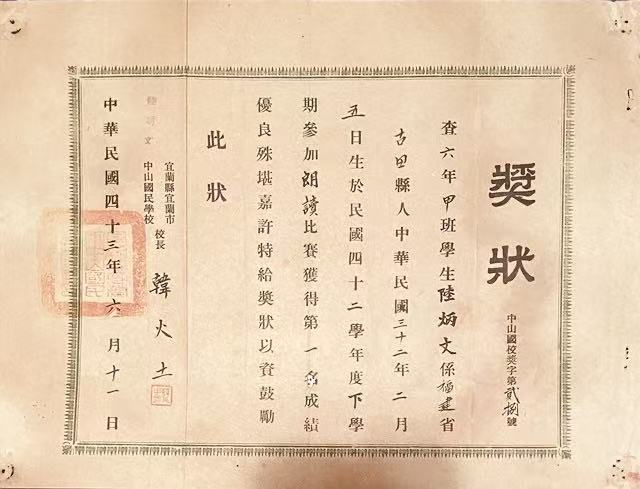 獎狀
中山國校奬字第貳捌號
查六年甲班學生陸炳文係福建省
古田縣人中華民國三十二年二月
五日生於民國四十二學年度下學
期參加朗讀比賽獲得第一名成績
優良殊堪嘉許特給獎狀以資鼓勵
此狀
宜蘭縣宜蘭市
中山國民學校
校長
韓火土
中華民國四十三年六月十一日